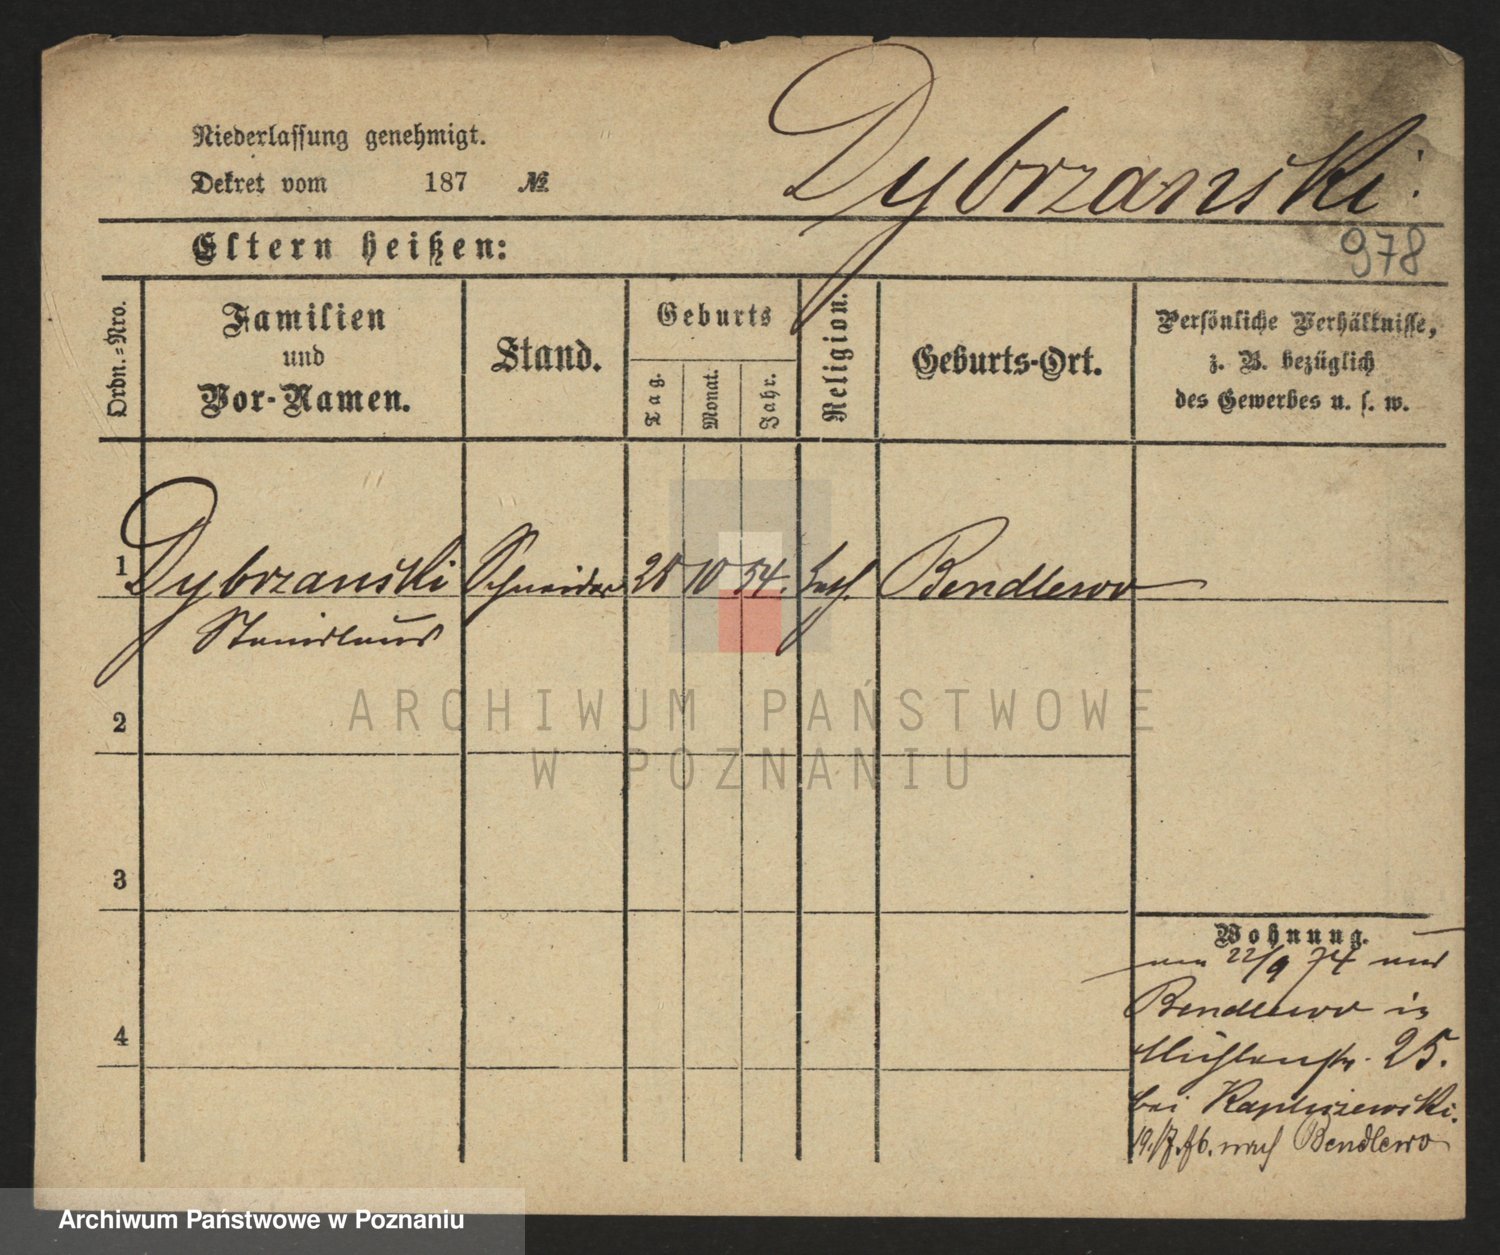 Niederlassung genehmigt.
Dekret vom 187 №
Dybrzanski.
978
Eltern heißen:
Ordn.-Nro.
Familien
und
Vor-Namen.
Stand.
Geburts
Tag.
Monat.
Jahr.
Religion.
Geburts-Ort.
Persönliche Verhältnisse,
z. B. bezüglich
des Gewerbes u. s. w.
1 Dybrzanski Schneider 28 10 54. kath. Bendlewo
Stanislaus
2
3
4
Wohnung.
22/9 74 aus
Bendlewo in
Mühlenstr. 25.
bei
19./7.76. nach Bendlewo
ARCHIWUM PAŃSTWOWE
W POZNANIU
Archiwum Państwowe w Poznaniu